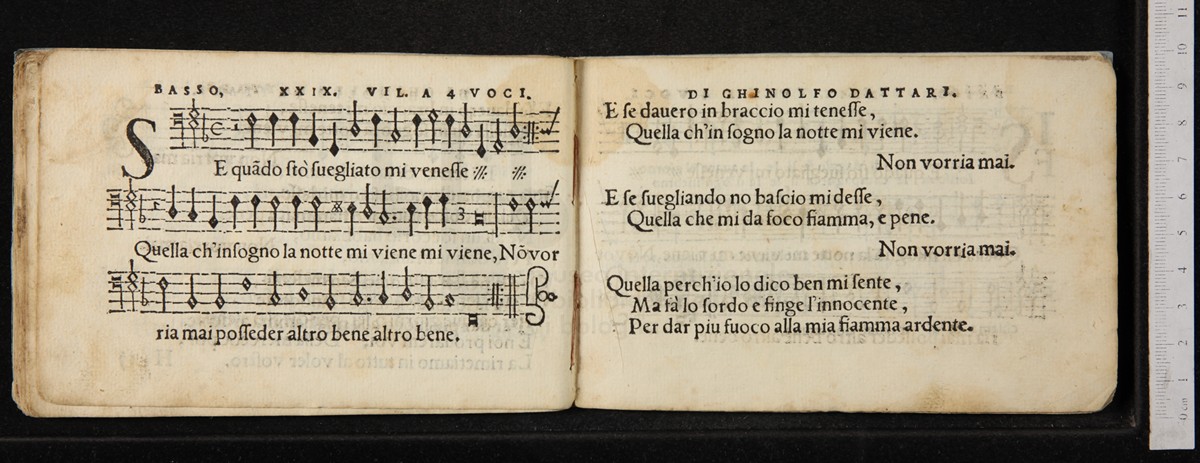 BASSO, XXIX. VIL. A 4 VOCI.
SE quãdo ſtò ſuegliato mi veneſſe :||: :||:
Quella ch'inſogno la notte mi viene mi viene, Nõ vor
ria mai poſſeder altro bene altro bene.
DI GHINOLFO DATTARI.
E ſe dauero in braccio mi teneſſe,
Quella ch'in ſogno la notte mi viene.
Non vorria mai.
E ſe ſuegliando no baſcio mi deſſe,
Quella che mi da foco fiamma, e pene.
Non vorria mai.
Quella perch'io lo dico ben mi ſente,
Ma fà lo ſordo e finge l'innocente,
Per dar piu fuoco alla mia fiamma ardente.
0 cm 1 2 3 4 5 6 7 8 9 10 11